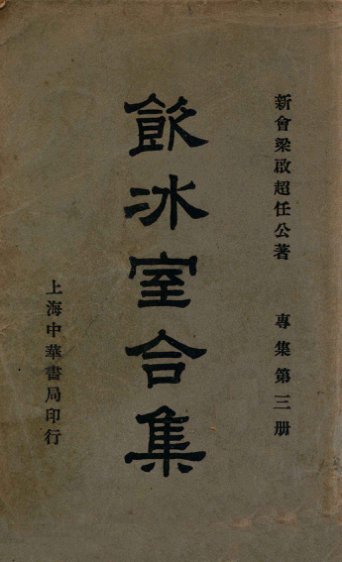 新會梁啟超任公著　專集第三册
飲冰室合集
上海中華書局印行